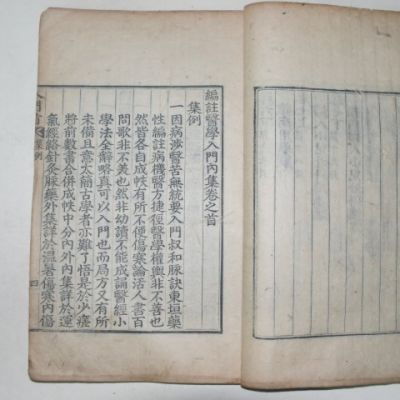 編註醫學入門內集卷之首
集例
一因病涉醫苦無統要入門叔和脉訣東垣藥
性編註病機醫方捷徑醫學權輿非不善也
然皆各自成帙有所不便傷寒論活人書百
問歌非不美也然非幼讀不能成誦醫經小
學法全辭略真可以入門也而局方又有所
未備且意太簡古學者亦難了悟是於少瘥
將前數書合併成帙中分內外內集詳於運
氣經絡針灸脉藥外集詳於溫暑傷寒內傷
門首 集例 四